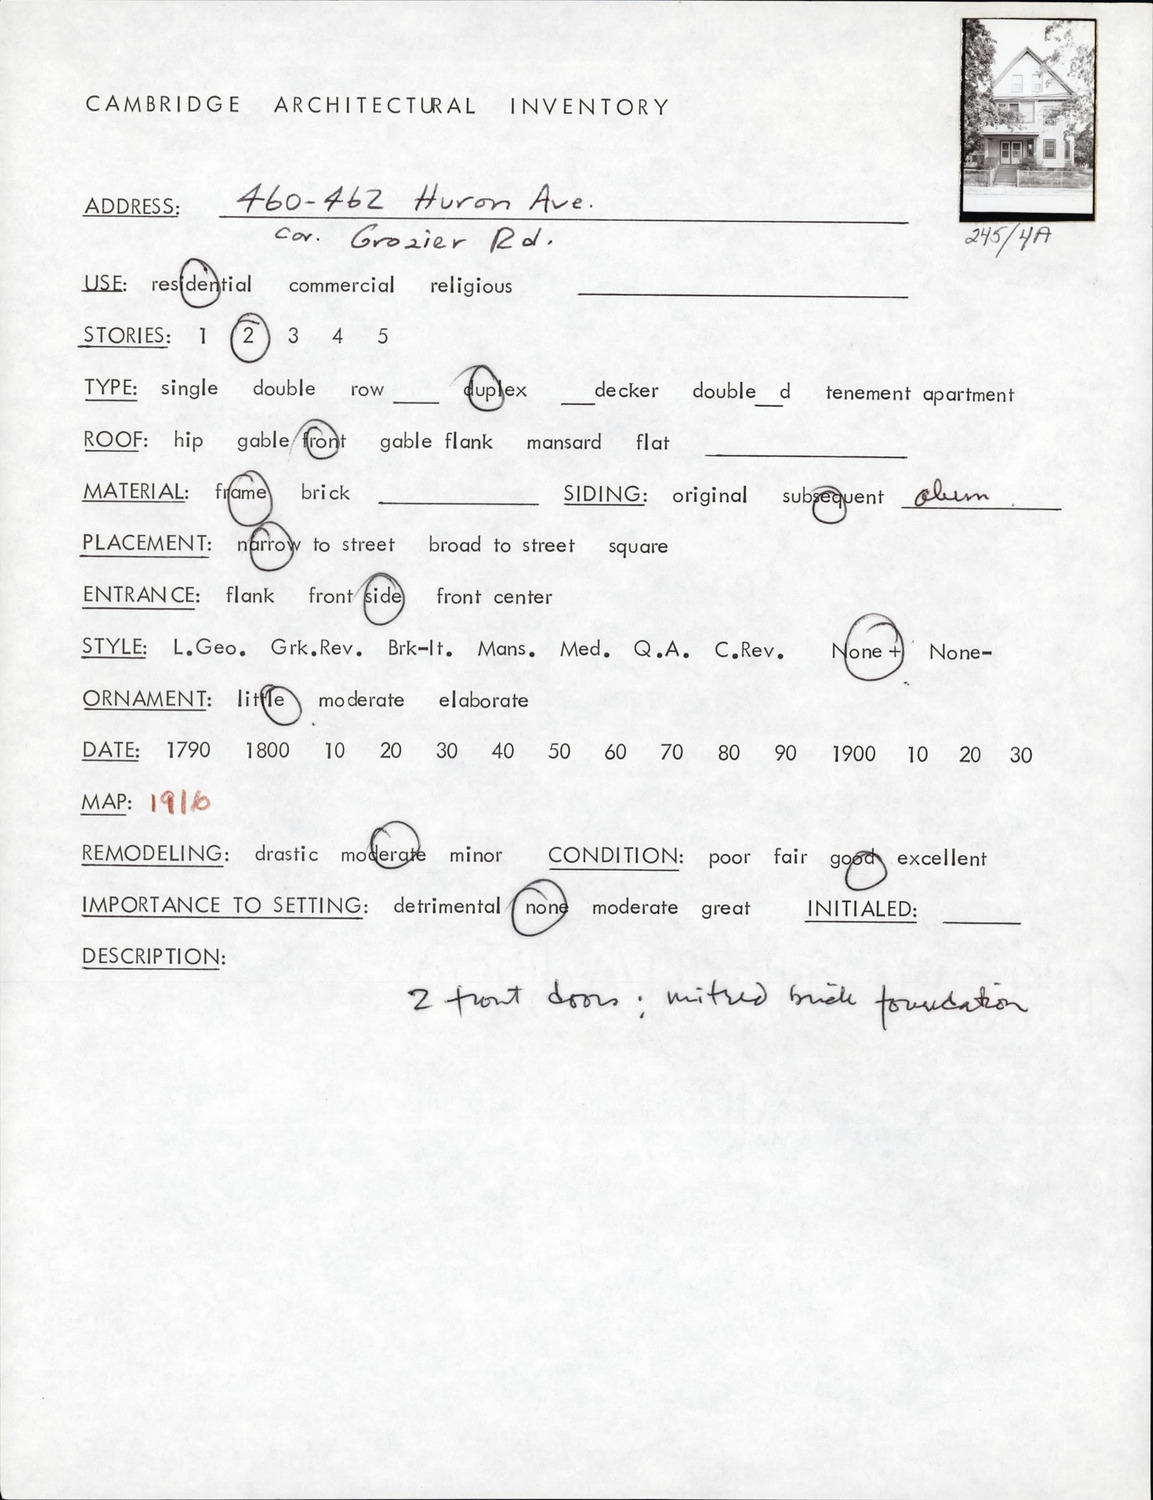 CAMBRIDGE ARCHITECTURAL INVENTORY
ADDRESS: 460-462 Huron Ave.
cor. Grozier Rd.
245/4A
USE: residential commercial religious
STORIES: 1 2 3 4 5
TYPE: single double row ____ duplex ___decker double__d tenement apartment
ROOF: hip gable front gable flank mansard flat
MATERIAL: frame brick SIDING: original subsequent alum.
PLACEMENT: narrow to street broad to street square
ENTRANCE: flank front side front center
STYLE: L.Geo. Grk.Rev. Brk-It. Mans. Med. Q.A. C.Rev. None + None-
ORNAMENT: little moderate elaborate
DATE: 1790 1800 10 20 30 40 50 60 70 80 90 1900 10 20 30
MAP: 1916
REMODELING: drastic moderate minor CONDITION: poor fair good excellent
IMPORTANCE TO SETTING: detrimental none moderate great INITIALED:
DESCRIPTION:
2 front doors; mitred brick foundation